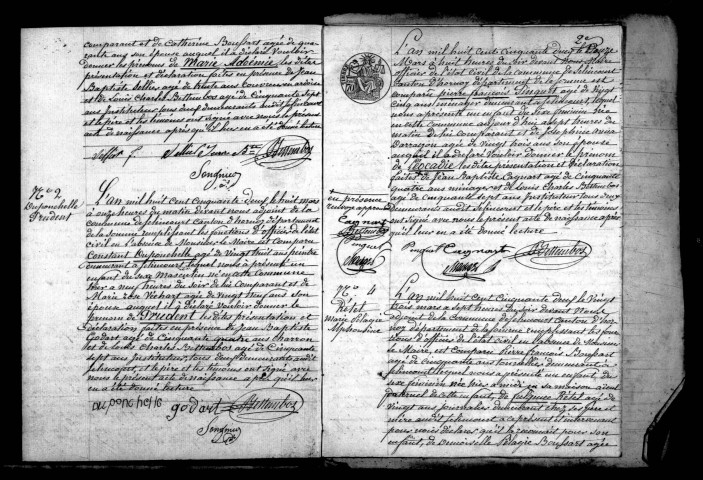 comparant et de Catherine Boussart agée de qua-
rante ans son épouse auquel il a déclaré vouloir
donner les prénoms de Marie Adrémie les dites
présentation et déclaration faites en présence de Jean
Baptiste Sellier agé de trente ans couvreur en ardoises
et de Louis Charles Bettembos agé de Cinquante Sept
ans Instituteur tous deux demeurants audit Jehincourt
et le père et les témoins ont signé avec nous le présent
acte de naissance après qu'il leur en a été donné lecture
Bettembos
No 2
Duponchelle
Prudent
L'an mil huit Cent Cinquante deux le huit mars
à onze heures du matin devant nous adjoint de la
commune de Canton d'hornoy département
de la Somme remplissant les fonctions d'officier de l'état
Civil en l'absence de Monsieur le Maire est Comparu
Constant Duponchelle agé de Vingt huit ans peintre
demeurant à lequel nous a présenté un
enfant du Sexe Masculin né en cette Commune
hier a neuf heures du Soir de lui Comparant et de
Marie Rose agée de Vingt Neuf ans Son
épouse auquel il a déclaré Vouloir donner le
prenom de Prudent les dites présentation et
déclaration faites en présence de Jean Baptiste
Godart agé de Cinquante quatre ans Charron
et de Louis Charles Bettembos agé de Cinquante
Sept ans Instituteur tous deux demeurants audit
et le père et les témoins ont signé avec
nous le présent acte de naissance après qu'il leur
en a été donné lecture
duponchelle
godart Bettembos
2e
L'an mil huit Cent Cinquante deux le Douze
Mars à huit heures du Soir devant Nous Maire
officier de l'état civil de la commune de
Canton d'hornoy département de la Somme est
comparu pierre françois agé de Vingt
Cinq ans ménager demeurant à lequel
nous a présenté un enfant du Sexe féminin née
en cette commune aujourd'hui à Sept heures du
matin de lui comparant et de Josephine anna
Darragon agée de Vingt trois ans Son épouse
auquel il a déclaré Vouloir donner le prénom
de Léocadie les dites présentation et déclaration
faites de Jean Baptiste Cagnart agé de Cinquante
quatre ans ménager et de Louis Charles Bettembos
agé de Cinquante Sept ans Instituteur tous deux
demeurants audit et le père et les témoins
ont signé avec nous le présent acte de naissance après
qu'il leur en a été donné lecture
en présence
Cagnart
Bettembos
Cagnart Bettembos
No 4
Rétel
Marie Pélagie
Alphonsine
L'an mil huit Cent Cinquante deux le Vingt
trois mars a sept heures du Soir devant Nous
adjoint de la Commune de Canton d'hor-
noy département de la Somme remplissant les fonc-
tions d'officier de l'état Civil en l'absence de Monsieur
le Maire, est comparu pierre françois Boussart
agé de Cinquante ans demeurant à
lequel nous a présenté un enfant du
sexe féminin née hier à midi en sa maison
de cette enfant, de Rétel agé de
Vingt ans Journalier demeurant chez ses père et
mère audit et intervenant
pour nous déclarer qu'il la reconnait pour son
enfant, et de demoiselle Pélagie Boussart agée